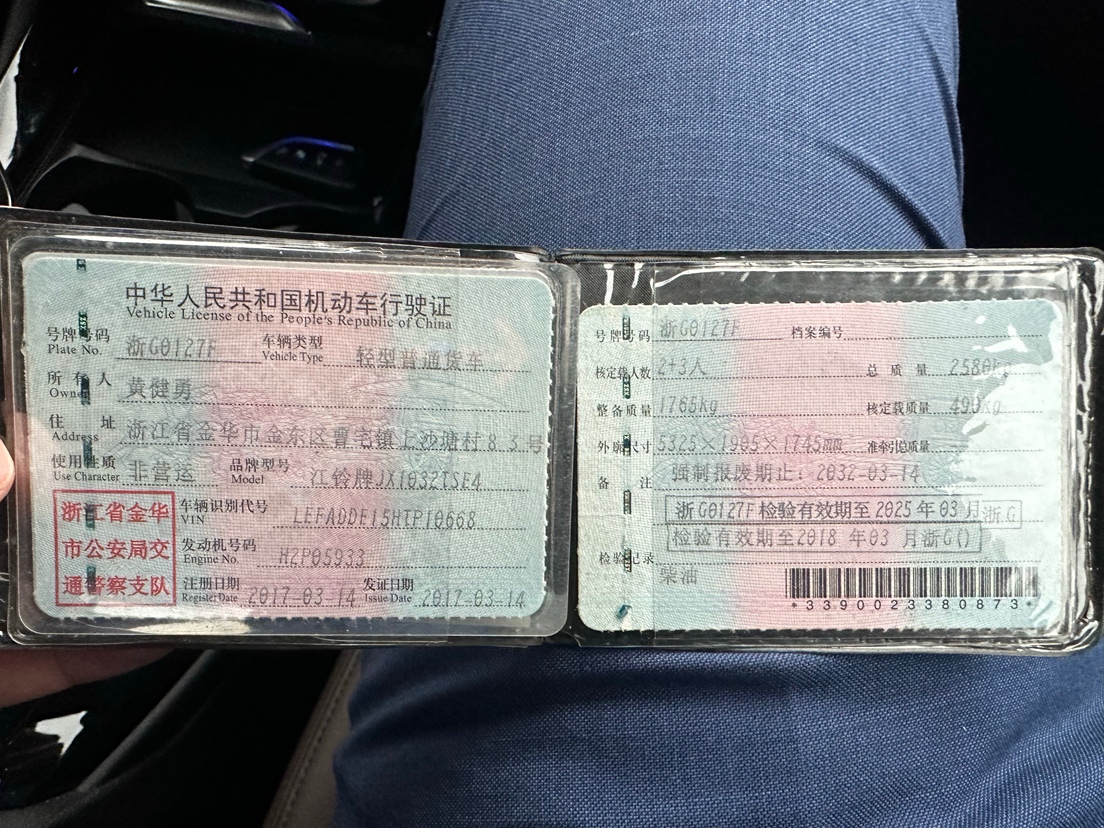 中华人民共和国机动车行驶证
Vehicle License of the People's Republic of China
号牌号码 浙G0127F 车辆类型 轻型普通货车
Plate No. Vehicle Type
所有人 黄健勇
Owner
住址 浙江省金华市金东区曹宅镇上沙塘村83号
Address
使用性质 非营运 品牌型号 江铃牌JX1032TSE4
Use Character Model
浙江省金华
市公安局交
通警察支队
车辆识别代号 LEFADDE15HTP10668
VIN
发动机号码 H2P05933
Engine No.
注册日期 2017-03-14 发证日期 2017-03-14
Register Date Issue Date
号牌号码 浙G0127F 档案编号
核定载人数 2+3人 总质量 2580kg
整备质量 1765kg 核定载质量 490kg
外廓尺寸 5325×1905×1745mm 准牵引总质量
备注 强制报废期止：2032-03-14
浙G0127F检验有效期至2025年03月浙G
检验有效期至2018年03月浙G()
检验记录
柴油
*3390023380873*